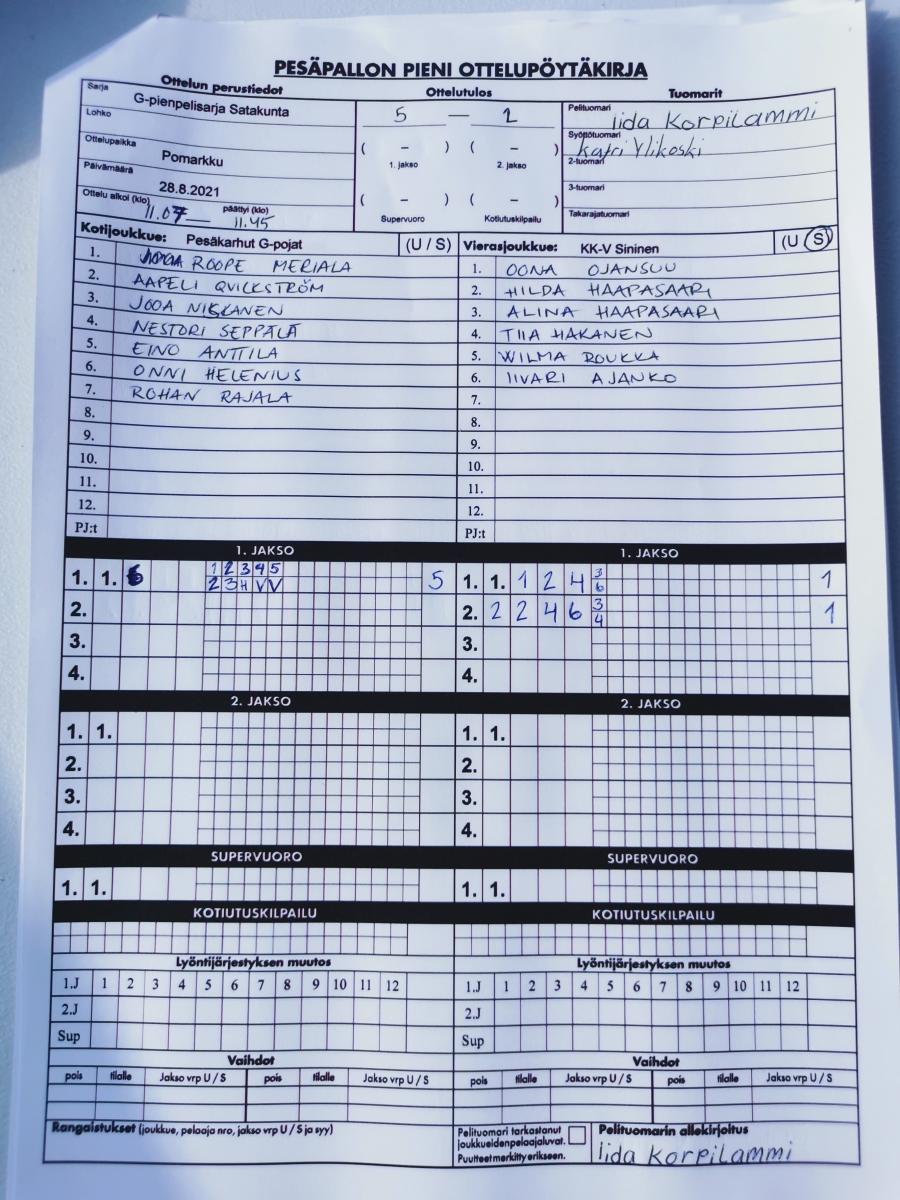 PESÄPALLON PIENI OTTELUPÖYTÄKIRJA
Ottelun perustiedot Ottelutulos Tuomarit
Sarja G-pienpelisarja Satakunta
Lohko
Ottelupaikka Pomarkku
Päivämäärä 28.8.2021
Ottelu alkoi (klo) 11.07 päättyi (klo) 11.45
5 — 2
( – ) ( – )
1. jakso 2. jakso
( – ) ( – )
Supervuoro Kotiutuskilpailu
Pelituomari Iida Korpilammi
Syöttötuomari Katri Ylikoski
2-tuomari
3-tuomari
Takarajatuomari
Kotijoukkue: Pesäkarhut G-pojat (U / S)
1. ROOPE MERIALA
2. AAPELI QVICKSTRÖM
3. JOOA NISKANEN
4. NESTORI SEPPÄLÄ
5. EINO ANTTILA
6. ONNI HELENIUS
7. ROHAN RAJALA
8.
9.
10.
11.
12.
PJ:t
Vierasjoukkue: KK-V Sininen (U / S)
1. OONA OJANSUU
2. HILDA HAAPASAARI
3. ALINA HAAPASAARI
4. TIIA HAKANEN
5. WILMA ROUKKA
6. IIVARI AJANKO
7.
8.
9.
10.
11.
12.
PJ:t
1. JAKSO 1. JAKSO
1. 1. 6 1 2 3 4 5 5
2 3 H V V
2.
3.
4.
1. 1. 1 2 4 3 1
6
2. 2 2 4 6 3 1
4
3.
4.
2. JAKSO 2. JAKSO
1. 1. 1. 1.
2. 2.
3. 3.
4. 4.
SUPERVUORO SUPERVUORO
1. 1. 1. 1.
KOTIUTUSKILPAILU KOTIUTUSKILPAILU
Lyöntijärjestyksen muutos Lyöntijärjestyksen muutos
1.J 1 2 3 4 5 6 7 8 9 10 11 12 1.J 1 2 3 4 5 6 7 8 9 10 11 12
2.J 2.J
Sup Sup
Vaihdot Vaihdot
pois tilalle Jakso vrp U / S pois tilalle Jakso vrp U / S pois tilalle Jakso vrp U / S pois tilalle Jakso vrp U / S
Rangaistukset (joukkue, pelaaja nro, jakso vrp U / S ja syy)
Pelituomari tarkastanut
joukkueidenpelaajaluvat.
Puutteet merkitty erikseen.
Pelituomarin allekirjoitus
Iida Korpilammi